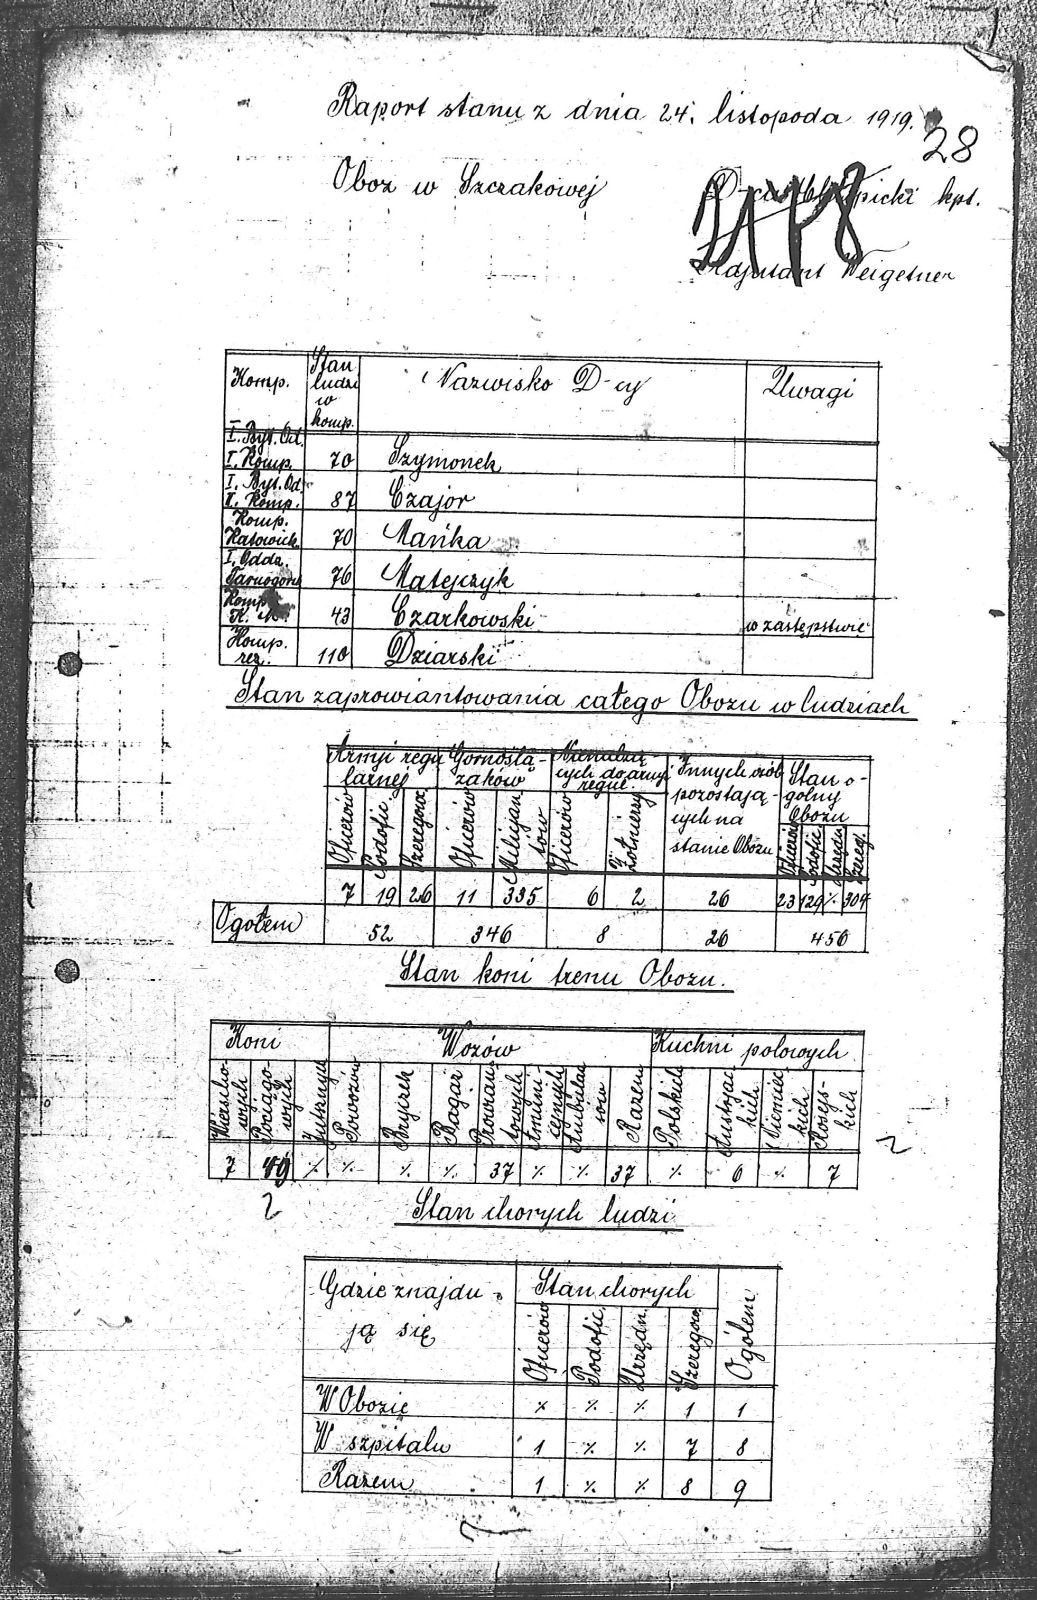 Raport stanu z dnia 24. listopada 1919.
28
Oboz w Szczakowej
kpt.
Adjutant Weigetner
Komp. Stan ludzi w komp. Nazwisko D-cy Uwagi
I. Byt. Od. I. Komp. 70 Szymonek
I. Byt. Od. II. Komp. 87 Czajor
Komp. Katowick. 70 Mańka
I. Odda. Tarnogórs 76 Matejczyk
Komp. K. M. 43 Czarkowski w zastępstwie
Komp. rez. 110 Dziarski
Stan zaprowiantowania całego Obozu w ludziach
Armji regularnej Gornoślązaków Nienależących do armji regul. Innych osób pozostających na stanie Obozu Stan ogolny Obozu
Oficerów Podofic. Szeregow. Oficerów Milicjantow Oficerów Żołnierzy Oficerów Podofic. Urzędn. Szereg.
7 19 26 11 335 6 2 26 23 129 % 304
Ogołem 52 346 8 26 456
Stan koni trenu Obozu.
Koni Wozów Kuchni polowych
Wierzchowych Pociągowych Jucznych Powozów Bryczek Bagaż Prowiantowych Amunicyjnych Ambulansow Razem Polskich Austryackich Niemieckich Rosyjskich
7 49 % % % % 37 % % 37 % 6 % 7
2
2
Stan chorych ludzi
Gdzie znajdują się Stan chorych Ogółem
Oficerów Podofic. Urzędn. Szeregow.
W Obozie % % % 1 1
W szpitalu 1 % % 7 8
Razem 1 % % 8 9